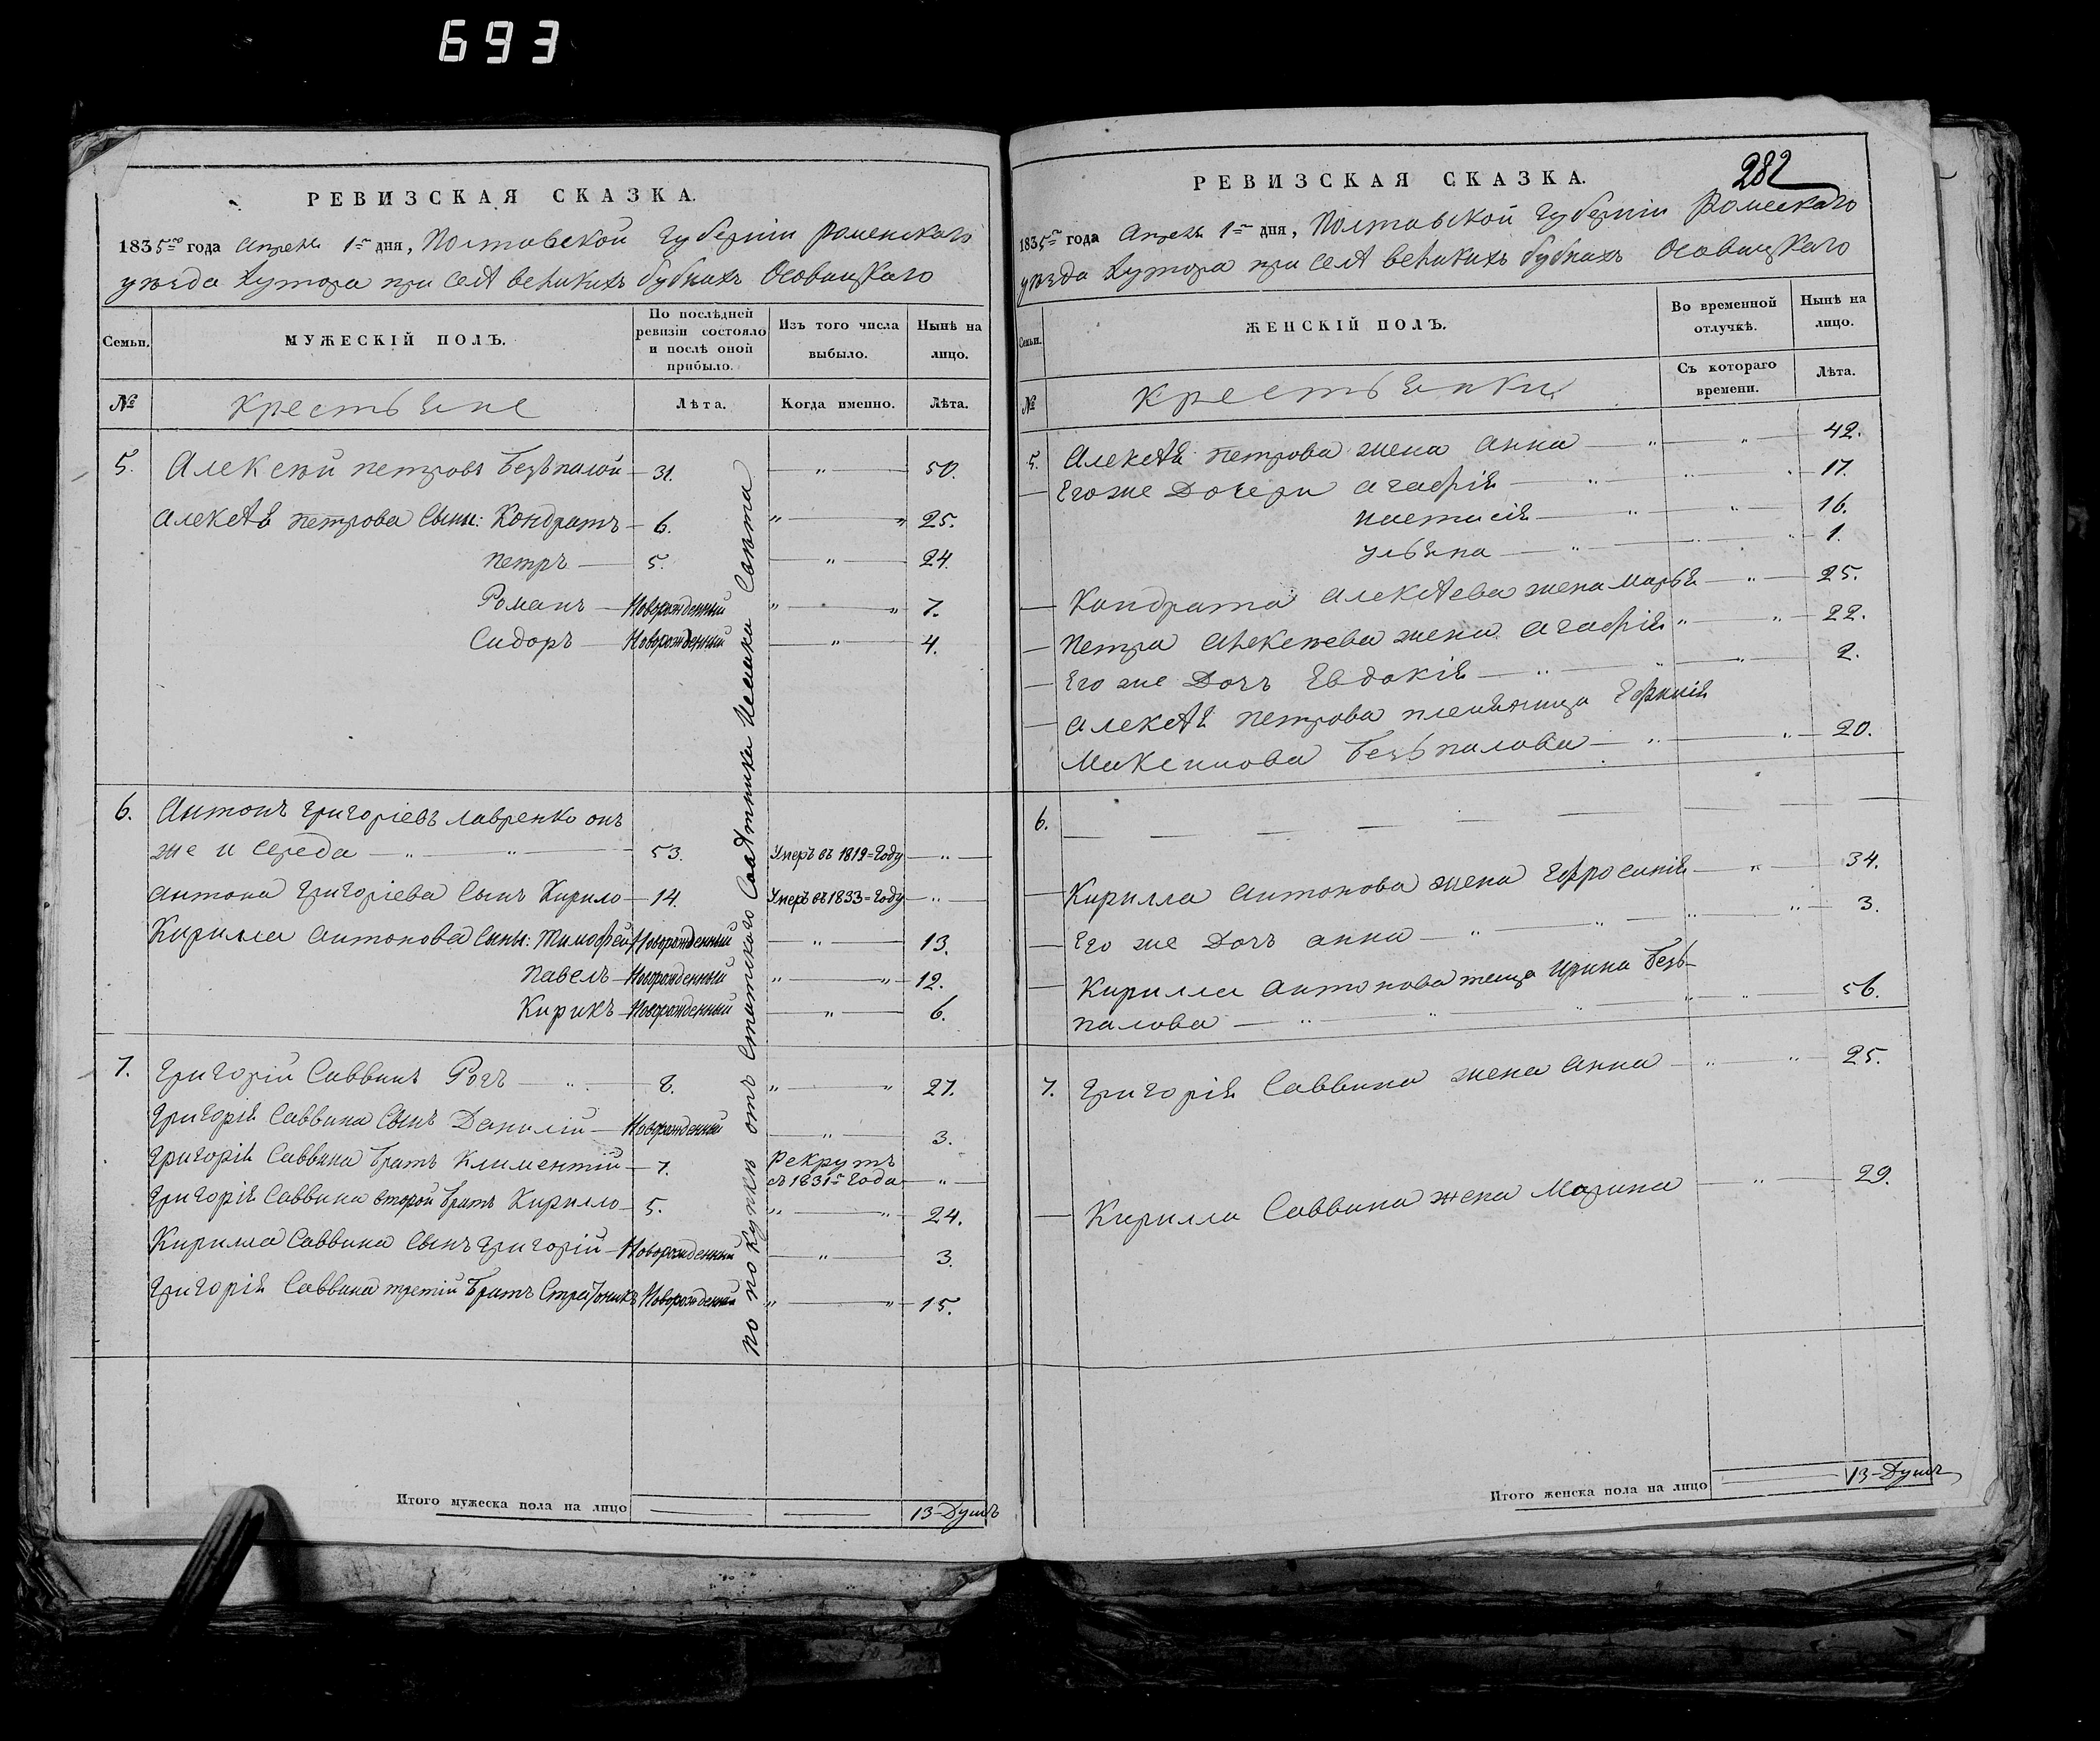 693
РЕВИЗСКАЯ СКАЗКА.
1835го года Апреля 1го дня, Полтавской губерніи Роменского
уѣзда Хутора при селѣ великихъ бубнахъ Осовицкаго
Семьи.
МУЖЕСКІЙ ПОЛЪ.
По послѣдней ревизіи состояло и послѣ оной прибыло.
Изъ того числа выбыло.
Нынѣ на лицо.
№
Крестьяне
Лѣта.
Когда именно.
Лѣта.
5. Алексѣй петровъ Безъпалой — 31. — " — 50.
Алексѣя петрова Сыны: Кондратъ — 6. " — " 25.
петръ — 5. — " — 24.
Романъ — Новорожденный " — " 7.
Сидоръ — Новорожденный — " — 4.
6. Антонъ григоріевъ лавренко онъ
же и середа — " — " — 53. Умеръ въ 1819=Году — " —
Антона григоріева Сынъ Кирило — 14. Умеръ въ 1833=Году — " —
Кирилла Антонова Сыны: Тимофей Новорожденный — " — 13.
павелъ — Новорожденный " — " — 12.
Кирикъ — Новорожденный — " — 6.
7. григорій Саввинъ Рогъ — " — 8. " — " 27.
григорія Саввина Сынъ Данилій — Новорожденный — " — 3.
григорія Саввина братъ климентій — 7. рекрутъ
съ 1831го Года — " —
григорія Саввина второй братъ Кирилло — 5. " — " — 24.
Кирилла Саввина Сынъ григорій — Новорожденный — " — 3.
григорія Саввина третій братъ Стратоникъ Новорожденный " — " — 15.
по покупкѣ отъ Статского Совѣтника
Итого мужеска пола на лицо 13-Душъ
282
РЕВИЗСКАЯ СКАЗКА.
1835го года Апреля 1го дня, Полтавской губерніи Роменскаго
уѣзда Хутора при селѣ великихъ бубнахъ Осовицкаго
Семьи.
ЖЕНСКІЙ ПОЛЪ.
Во временной отлучкѣ.
Нынѣ на лицо.
№
Крестьянки
Съ котораго времени.
Лѣта.
5. Алексѣя петрова жена анна — " — " — 42.
Его же Дочери агафія — " — " 17.
настасія — " — " — 16.
ульяна — " — " 1.
— Кондрата алексѣева жена марья — " — 25.
— петра алексѣева жена агафія " — " — 22.
— Его же Дочъ Евдокія — " — " — 2.
— алексѣя петрова племяница Ефимія
Максимова безъпалова — " — " — 20.
6. — — — — — —
— Кирилла антонова жена Ефросинія — " — 34.
— Его же Дочъ анна — " — " — 3.
— Кирилла антонова теща Ирина безъ-
палова — " — " — 56.
7. григорія Саввина жена анна — " — " — 25.
— Кирилла Саввина жена Марина — " — 29.
Итого женска пола на лицо 13-Душъ